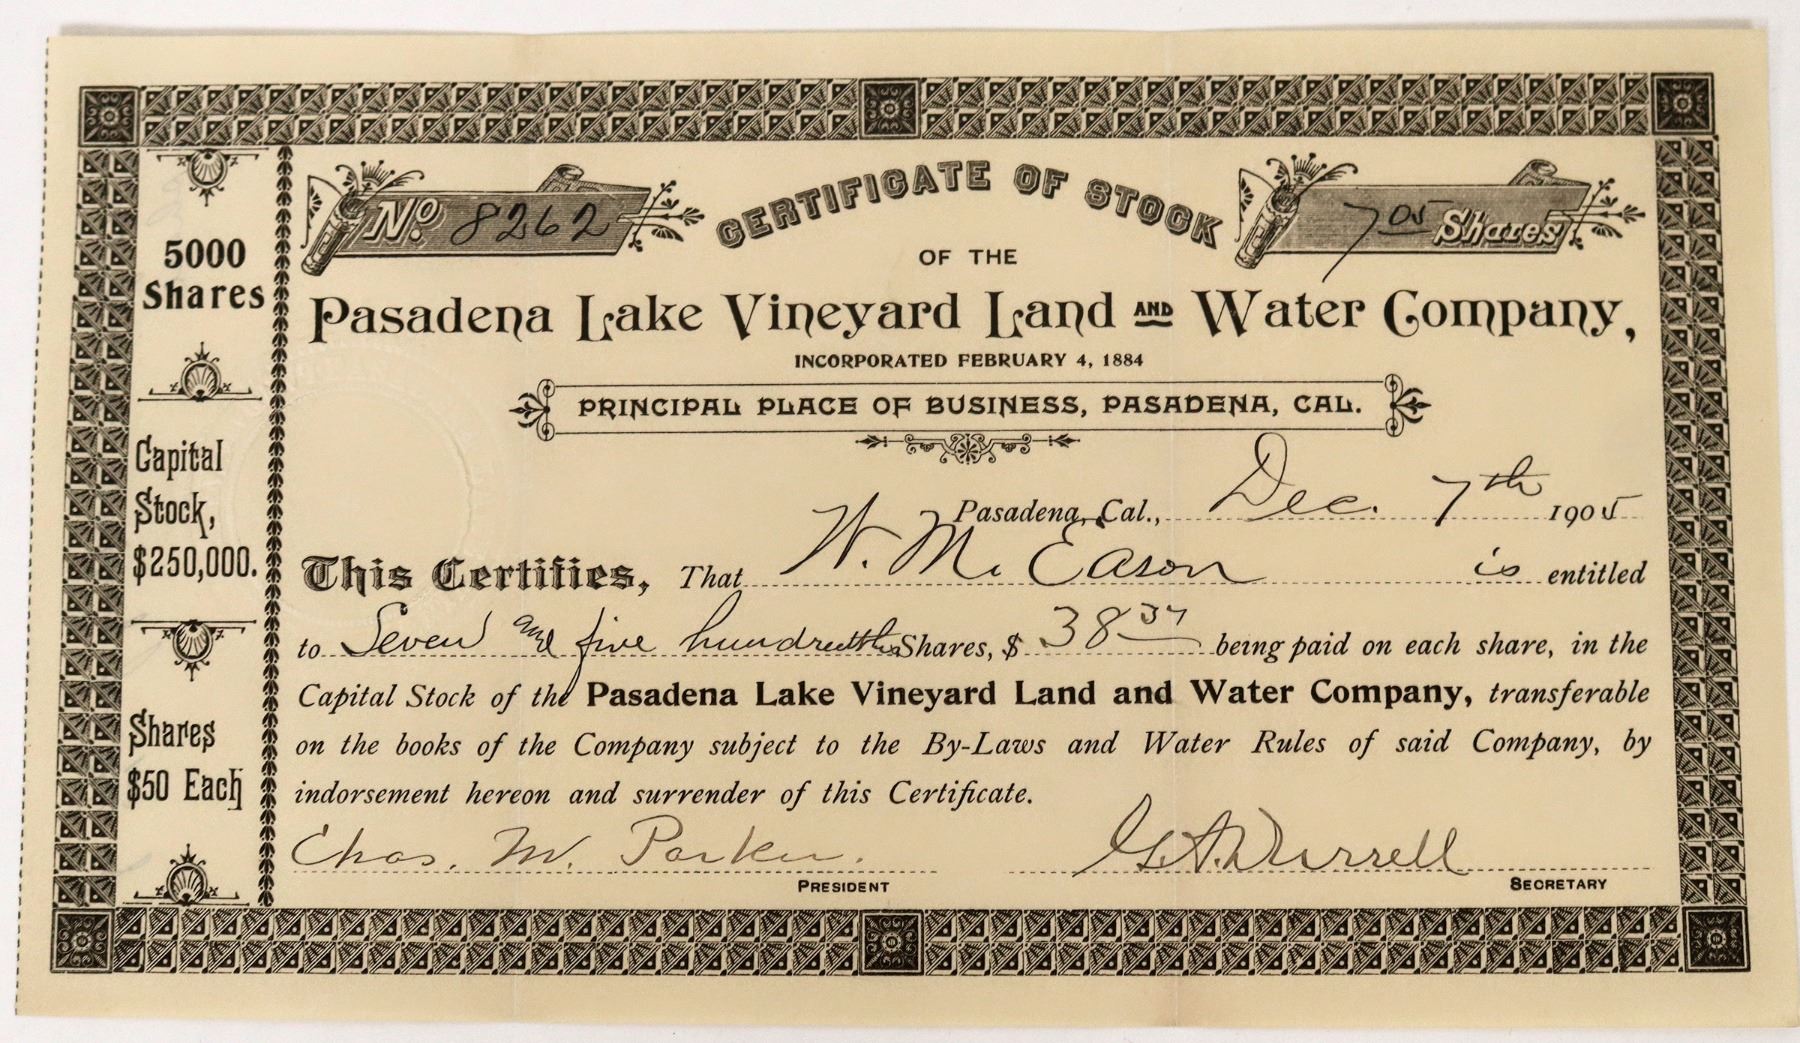 No. 8262
CERTIFICATE OF STOCK
7 05 Shares
OF THE
Pasadena Lake Vineyard Land AND Water Company,
INCORPORATED FEBRUARY 4, 1884
PRINCIPAL PLACE OF BUSINESS, PASADENA, CAL.
5000
Shares
Capital
Stock,
$250,000.
Shares
$50 Each
Pasadena, Cal., Dec. 7th 1905
This Certifies, That W. M. Eason is entitled
to Seven and five hundredths Shares, $ 38 37 being paid on each share, in the
Capital Stock of the Pasadena Lake Vineyard Land and Water Company, transferable
on the books of the Company subject to the By-Laws and Water Rules of said Company, by
indorsement hereon and surrender of this Certificate.
Chas. M. Parker.
PRESIDENT
G.A. Durrell
SECRETARY